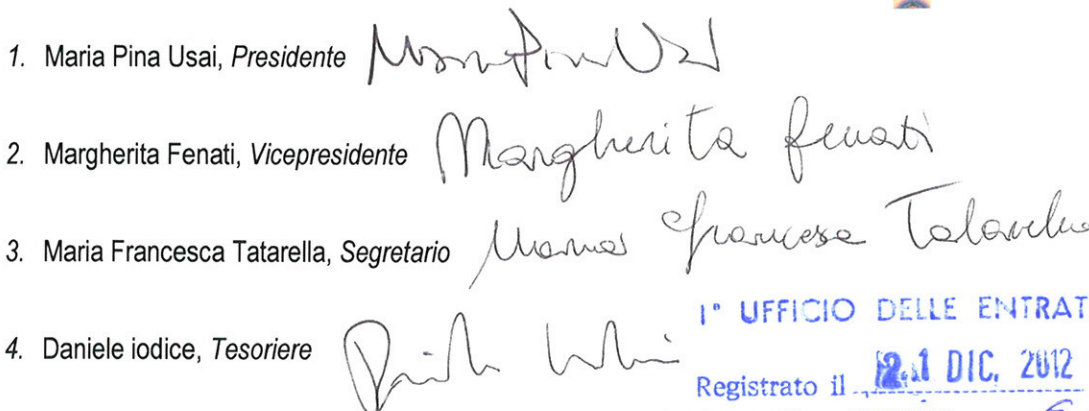 1. Maria Pina Usai, Presidente Maria Pina Usai
2. Margherita Fenati, Vicepresidente Margherita Fenati
3. Maria Francesca Tatarella, Segretario Maria Francesca Tatarella
4. Daniele iodice, Tesoriere
1° UFFICIO DELLE ENTRAT
Registrato il 21 DIC. 2012